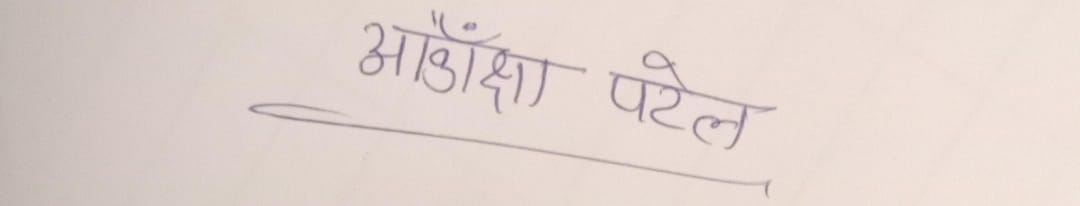 आकाँक्षा पटेल